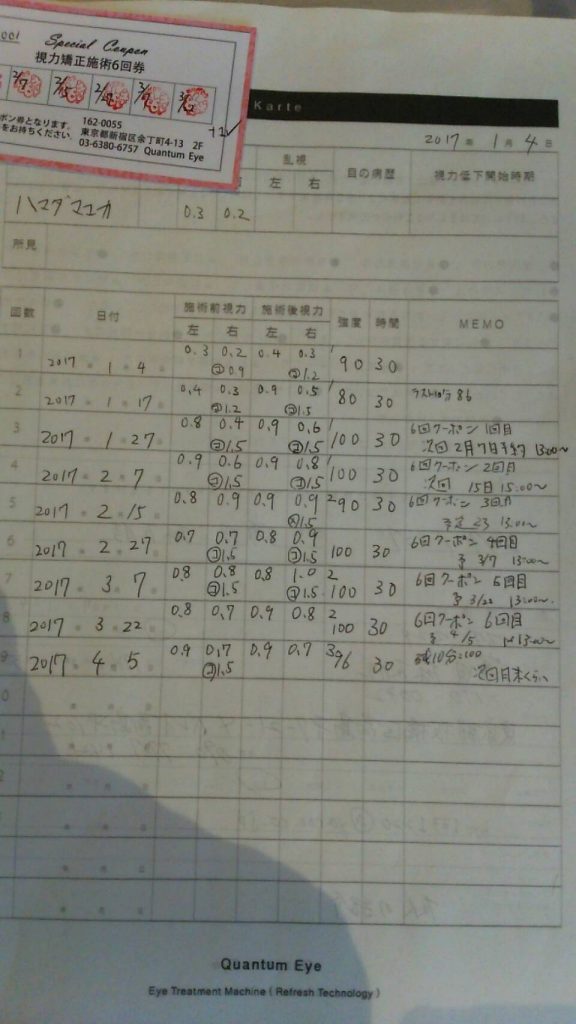 001
Special Coupon
視力矯正施術6回券
2/7 2/15 3/7 3/22
ポン券となります。
をお持ちください。
162-0055
東京都新宿区余丁町4-13 2F
03-6380-6757 Quantum Eye
Karte
2017年 1月 4日
乱視 目の病歴 視力低下開始時期
左 右
0.3 0.2
所見
回数 日付 施術前視力 施術後視力 強度 時間 MEMO
左 右 左 右
1 2017 1 4 0.3 0.2 0.4 0.3 90 30
②0.9 ②1.2
2 2017 1 17 0.4 0.3 0.9 0.5 80 30 86
②1.2 ②1.5
3 2017 1 27 0.8 0.4 0.9 0.6 100 30 6回クーポン 1回目
②1.5 ②1.5 次回 2月7日予約 13:00〜
4 2017 2 7 0.9 0.6 0.9 0.8 100 30 6回クーポン 2回目
②1.5 ②1.5 次回 15日 15:00〜
5 2017 2 15 0.8 0.9 0.9 0.9 90 30 6回クーポン 3回目
②1.5 23 13:00〜
6 2017 2 27 0.7 0.7 0.8 0.9 100 30 6回クーポン 4回目
②1.5 ②1.5 3/7 13:00〜
7 2017 3 7 0.8 0.8 0.8 1.0 2 100 30 6回クーポン 5回目
②1.5 ②1.5 3/22 13:00〜
8 2017 3 22 0.8 0.7 0.9 0.8 2 100 30 6回クーポン 6回目
4/5 13:00〜
9 2017 4 5 0.9 0.7 0.9 0.7 3 96 30 10分=100
②1.5 次回月末くらい
0
1
2
3
4
5
Quantum Eye
Eye Treatment Machine ( Refresh Technology )